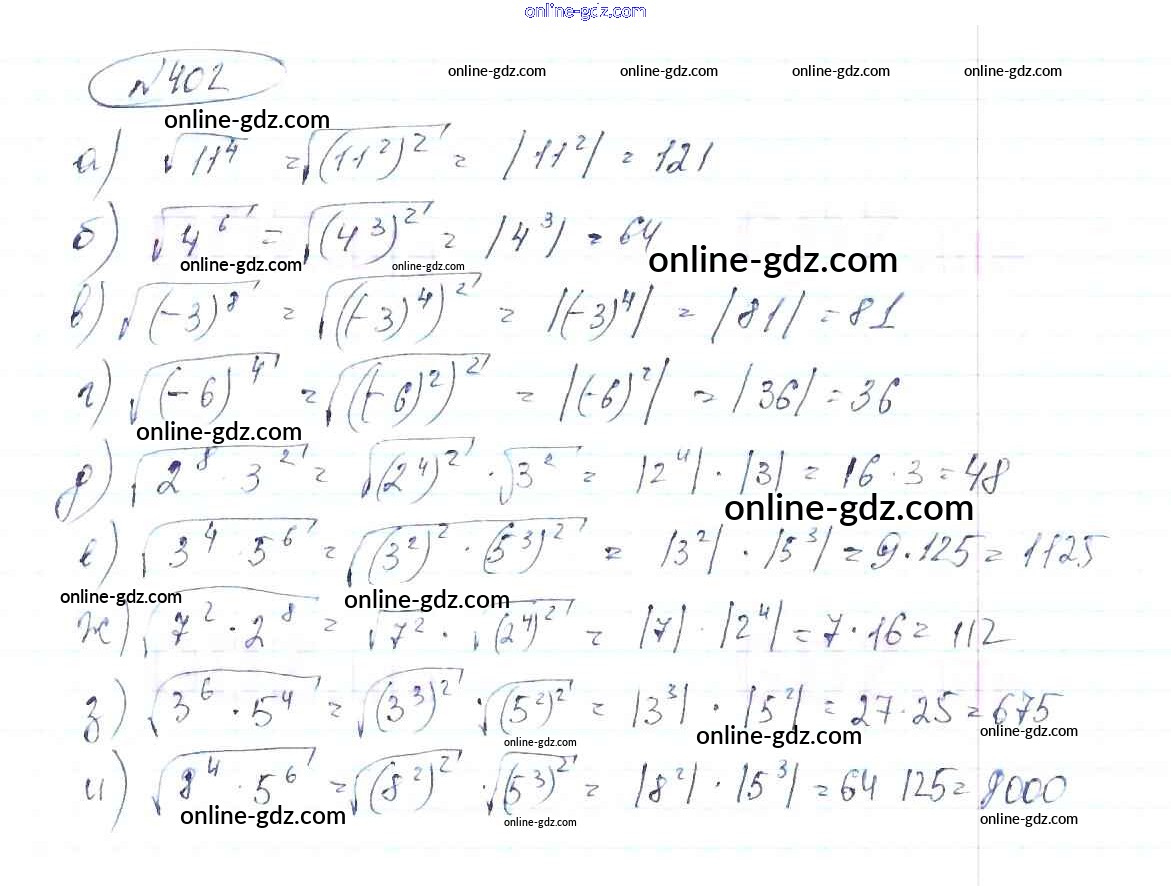 online-gdz.com
№402
online-gdz.com online-gdz.com online-gdz.com online-gdz.com
online-gdz.com
а) √11⁴ = √(11²)² = |11²| = 121
б) √4⁶ = √(4³)² = |4³| = 64
online-gdz.com online-gdz.com online-gdz.com
в) √(-3)⁸ = √((-3)⁴)² = |(-3)⁴| = |81| = 81
г) √(-6)⁴ = √((-6)²)² = |(-6)²| = |36| = 36
online-gdz.com
д) √2⁸ · 3² = √(2⁴)² · √3² = |2⁴| · |3| = 16 · 3 = 48
online-gdz.com
е) √3⁴ · 5⁶ = √(3²)² · (5³)² = |3²| · |5³| = 9 · 125 = 1125
online-gdz.com online-gdz.com
ж) √7² · 2⁸ = √7² · √(2⁴)² = |7| · |2⁴| = 7 · 16 = 112
з) √3⁶ · 5⁴ = √(3³)² · √(5²)² = |3³| · |5²| = 27 · 25 = 675
online-gdz.com online-gdz.com online-gdz.com
и) √8⁴ · 5⁶ = √(8²)² · √(5³)² = |8²| · |5³| = 64 125 = 8000
online-gdz.com online-gdz.com online-gdz.com